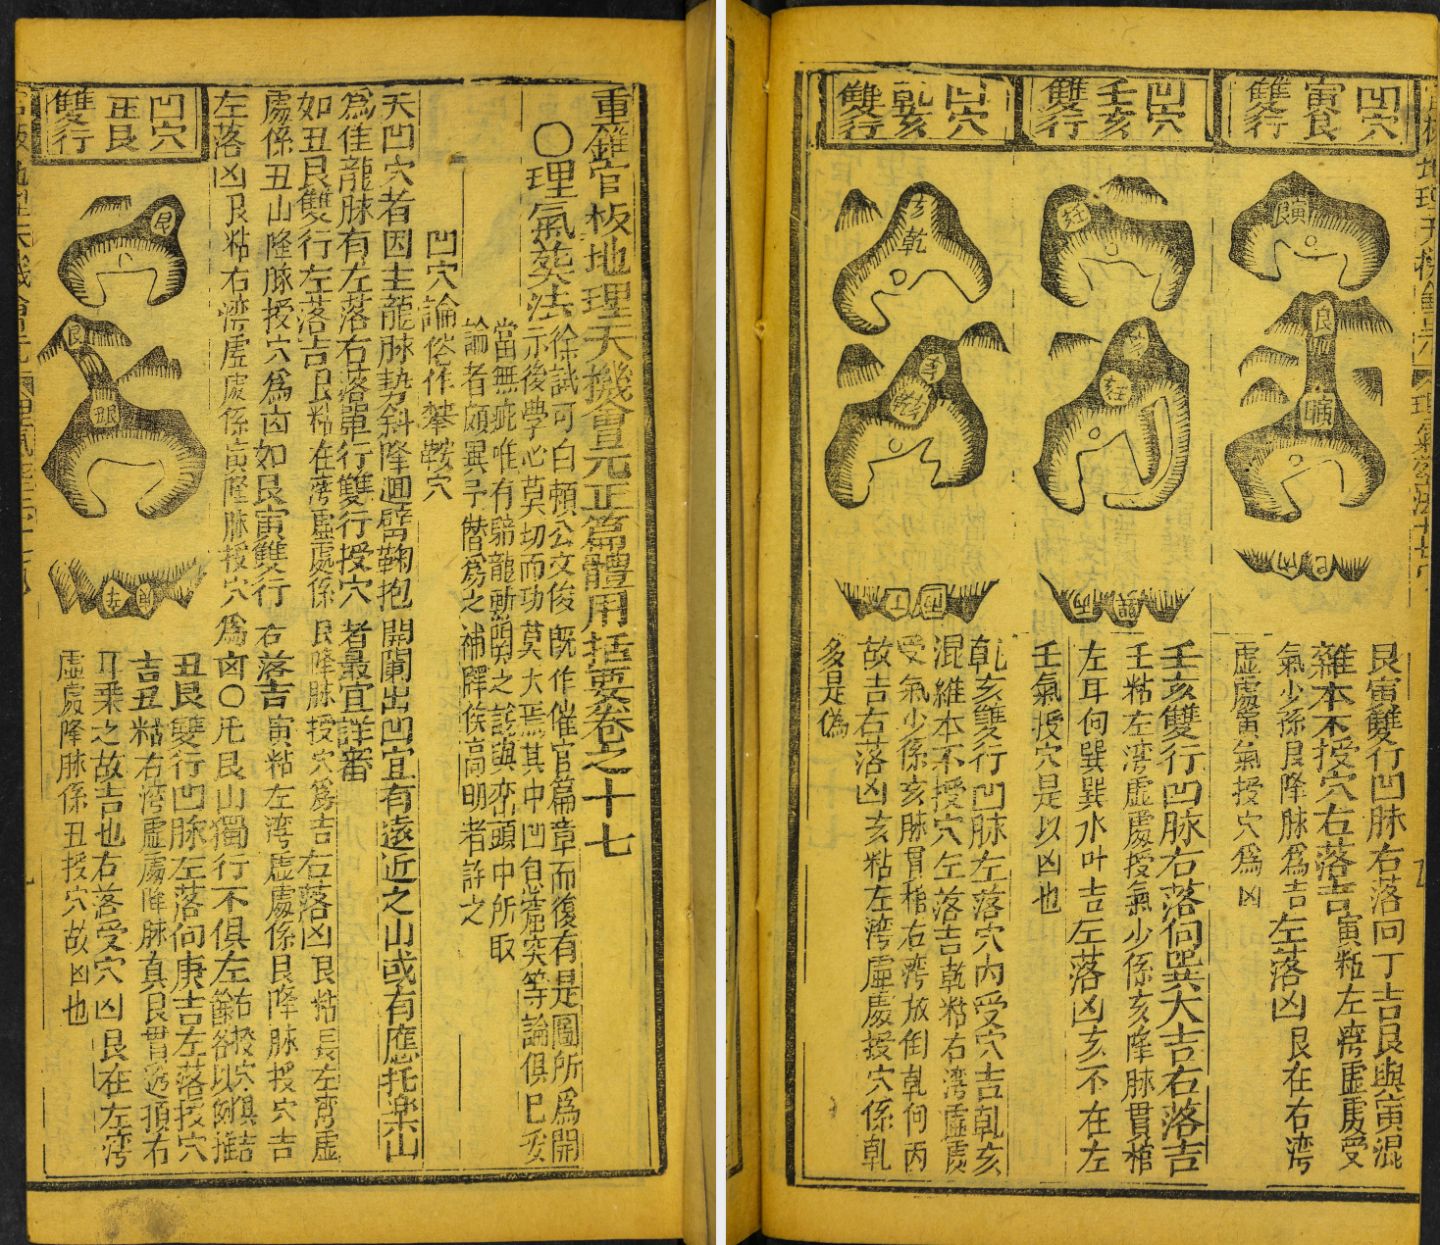 重鐫官板地理天機會元正篇體用括要卷之十七
○理氣葬法
徐試可白頼公文俊既作催官篇章而復有是圖所爲開
示後學心莫切而功莫大焉其中凹自窟突等論俱巳妥
當無疵唯有騎龍動關之説與巒頭中所取
論者頗異予僭爲之補釋俟高明者詳之
凹穴論俗作攀鞍穴
天凹穴者因主龍脉勢斜降迴臂鞠抱開闌出凹宜有遠近之山或有應托樂山
爲佳龍脉有左落右落單行雙行授穴者最宜詳審
如丑艮雙行左落吉艮粘在灣虛處係艮降脉授穴爲吉右落凶艮粘左灣虛
處係丑山降脉授穴爲凶如艮寅雙行右落吉寅粘左灣虛處係艮降脉授穴吉
左落凶艮粘右灣虛處係寅降脉授穴爲凶○凡艮山獨行不俱左右授穴俱吉餘以例推
凹穴
丑艮
雙行
艮
艮
丑艮
丑艮雙行凹脉左落向庚吉左落授穴
吉丑粘右灣虛處降脉真艮貫透頂右
耳乘之故吉也右落受穴凶艮在左灣
虛處降脉係丑授穴故凶也
凹穴
寅艮
雙行
艮寅
艮
艮寅
丁
艮寅雙行凹脉右落向丁吉艮與寅混
雜本不授穴右落吉寅粘左灣虛處受
氣少係艮降脉爲吉左落凶艮在右灣
虛處寅氣授穴爲凶
凹穴
壬亥
雙行
壬亥
亥
壬亥
巽
丙
壬亥雙行凹脉右落向巽大吉右落吉
壬粘左灣虛處授氣少係亥降脉貫棺
左耳向巽巽水叶吉左落凶亥不在左
壬氣授穴是以凶也
凹穴
乾亥
雙行
亥
乾
亥
乾亥
丙
丁
乾亥雙行凹脉左落穴内受穴吉乾亥
混雜本不授穴左落吉乾粘右灣虛處
受氣少係亥脉貫棺右灣放倒乾向丙
故吉右落凶亥粘左灣虛處授穴係乾
多是偽